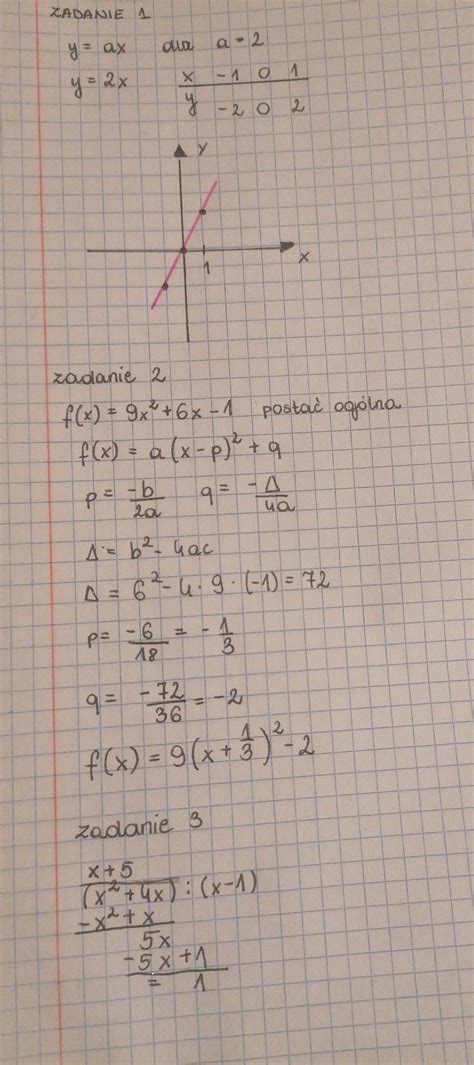 ZADANIE 1
y = ax dla a = 2
y = 2x
x -1 0 1
y -2 0 2
Y
X
1
zadanie 2
f(x) = 9x² + 6x - 1 postać ogólna
f(x) = a(x-p)² + q
p = -b/2a q = -Δ/4a
Δ = b² - 4ac
Δ = 6² - 4 · 9 · (-1) = 72
p = -6/18 = -1/3
q = -72/36 = -2
f(x) = 9(x + 1/3)² - 2
zadanie 3
x+5
(x² + 4x) : (x-1)
-x² + x
5x
-5x + 1
= 1